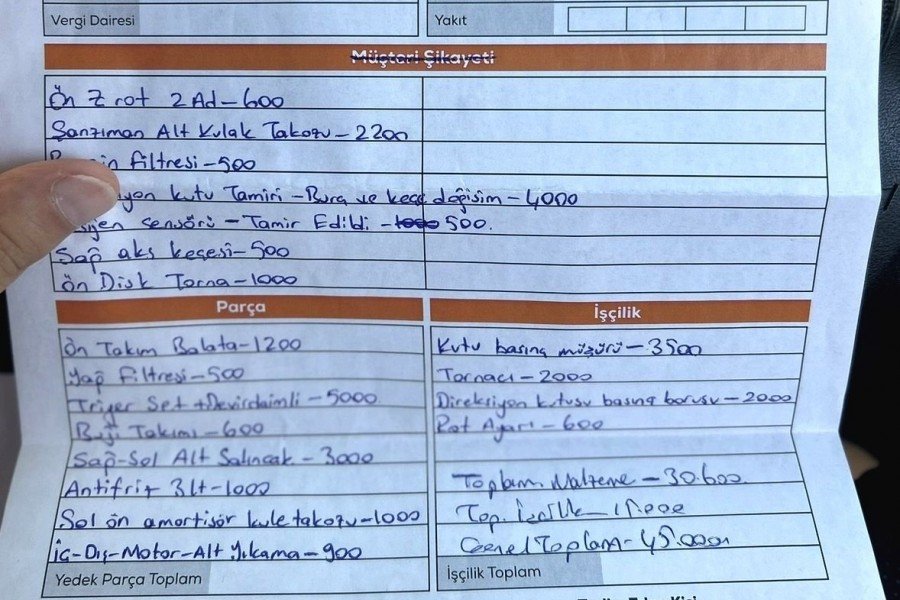 Vergi Dairesi
Yakıt
Müşteri Şikayeti
Ön Z rot 2 Ad - 600
Şanzıman Alt Kulak Takozu - 2200
filtresi - 500
kutu Tamiri - Burç ve keçe değişim - 4000
sensörü - Tamir Edildi - 1000 500.
Sağ aks keçesi - 500
Ön Disk Torna - 1000
Parça
İşçilik
Ön Takım Balata - 1200
Yağ Filtresi - 500
Triger Set + Devirdaimli - 5000
Buji Takımı - 600
Sağ-Sol Alt Salıncak - 3000
Antifriz 3 Lt - 1000
Sol ön amortisör kule takozu - 1000
İç-Dış-Motor-Alt Yıkama - 900
Kutu basınç müşürü - 3500
Tornacı - 2000
Direksiyon kutusu basınç borusu - 2000
Rot Ayarı - 600
Toplam Malzeme - 30.600
Top. İşçilik -
Genel Toplam - 45.000
Yedek Parça Toplam
İşçilik Toplam